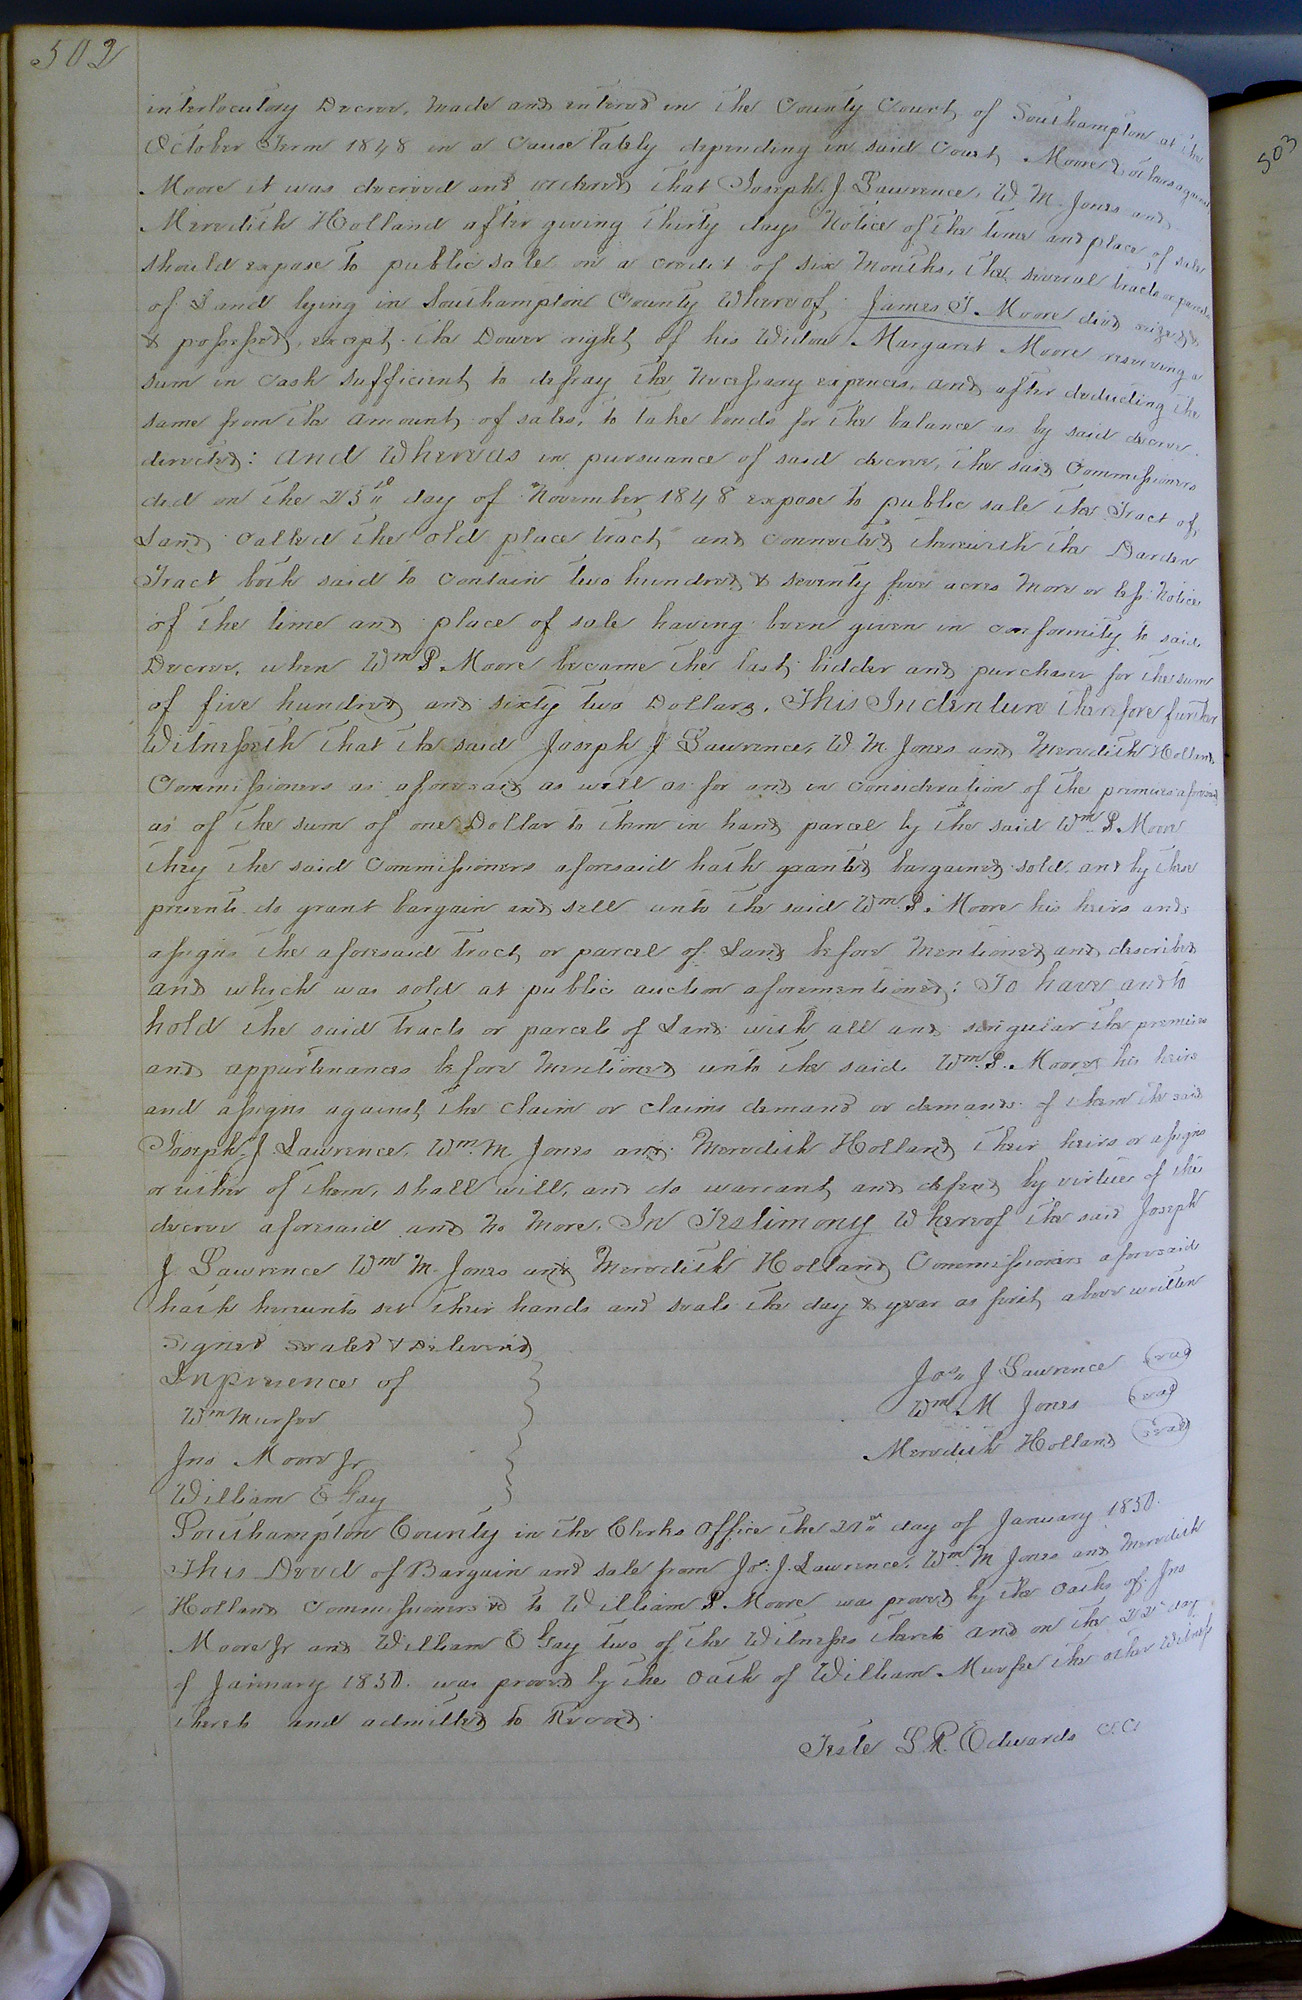 502
interlocutory Decree, made and entered in the County Court of Southampton at the
October Term 1848 in a Cause lately depending in said Court, Moore & others against
Moore it was decreed and ordered that Joseph J. Lawrence, W. M. Jones and
Meredith Holland after giving thirty days Notice of the time and place of sale
should expose to public sale on a credit of six months, the several tracts or parcels
of Land lying in Southampton County whereof James T. Moore died seized &
& possessed, except the Dower right of his Widow Margaret Moore reserving a
sum in cash sufficient to defray the necessary expences, and after deducting the
same from the amount of sales, to take bonds for the balance as by said decree
directed: and Whereas in pursuance of said decree, the said Commissioners
did on the 25th day of November 1848 expose to public sale the Tract of
Land called the old place tract, and connected therewith the Darden
Tract both said to contain two hundred & seventy five acres more or less Notice
of the time and place of sale having been given in conformity to said
Decree, when Wm P. Moore became the last bidder and purchaser for the sum
of five hundred and sixty two Dollars. This Indenture therefore further
Witnesseth that the said Joseph J Lawrence, W. M. Jones and Meredith Holland
Commissioners as aforesaid as well as for and in consideration of the premises aforesaid
as of the sum of one Dollar to them in hand parcel by the said Wm P. Moore
they the said Commissioners aforesaid hath granted bargained sold and by these
presents do grant bargain and sell unto the said Wm P. Moore his heirs and
assigns the aforesaid tract or parcel of Land before mentioned and described
and which was sold at public auction aforementioned: To have and to
hold the said tracts or parcels of Land with all and singular the premises
and appurtenances before mentioned unto the said Wm P. Moore his heirs
and assigns against the claim or claims demand or demands of them the said
Joseph J Lawrence, Wm M Jones and Meredith Holland their heirs or assigns
or either of them, shall will, and do warrant and defend by virtue of the
decree aforesaid and no more. In Testimony Whereof the said Joseph
J Lawrence Wm M. Jones and Meredith Holland Commissioners aforesaid
hath hereunto set their hands and seals the day & year as first above written
Signed Sealed & Delivered
In presence of
Jos J Lawrence (seal)
Wm Murfee
Wm M Jones (seal)
Jno Moore Jr
Meredith Holland (seal)
William E Gay
Southampton County in the Clerks Office the 21st day of January 1850.
This Deed of Bargain and sale from Jos. J. Lawrence, Wm M Jones and Meredith
Holland Commissioners to William P Moore was proved by the oaths of Jno
Moore Jr and William E Gay two of the Witnesses thereto and on the 22d day
of January 1850. was proved by the oath of William Murfee the other Witness
thereto and admitted to Record.
Teste L. R. Edwards C.C.
503